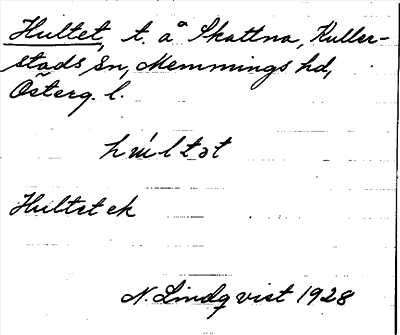 Hultet, t. å Skattna, Kuller-
stads sn, Memmings hd,
Österg. l.
Hultet ek
N. Lindqvist 1928